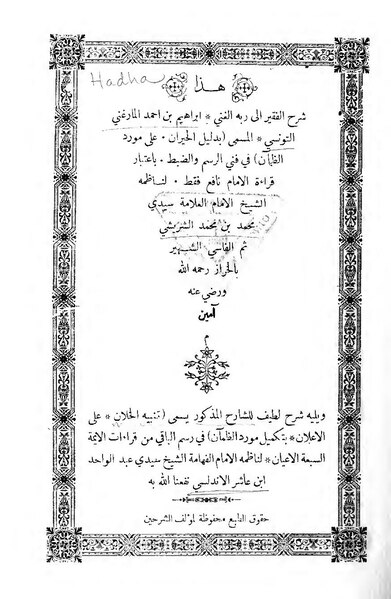 Hadha
هذا
شرح الفقير الى ربه الغني * ابراهيم بن احمد المارغني
التونسي * المسمى (بدليل الحيران * على مورد
الظمآن) في فني الرسم والضبط * باعتبار
قراءة الامام نافع فقط * لناظمه
الشيخ الامام العلامة سيدي
محمد بن محمد الشريشي
ثم الفاسي الشهير
بالخراز رحمه الله
ورضي عنه
آمين
م
ويليه شرح لطيف للشارح المذكور يسمى (تنبيه الخلان * على
الاعلان * بتكميل مورد الظمآن) في رسم الباقي من قراءات الايمة
السبعة الاعيان * لناظمه الامام الفهامة الشيخ سيدي عبد الواحد
ابن عاشر الاندلسي نفعنا الله به
حقوق الطبع محفوظة لمؤلف الشرحين